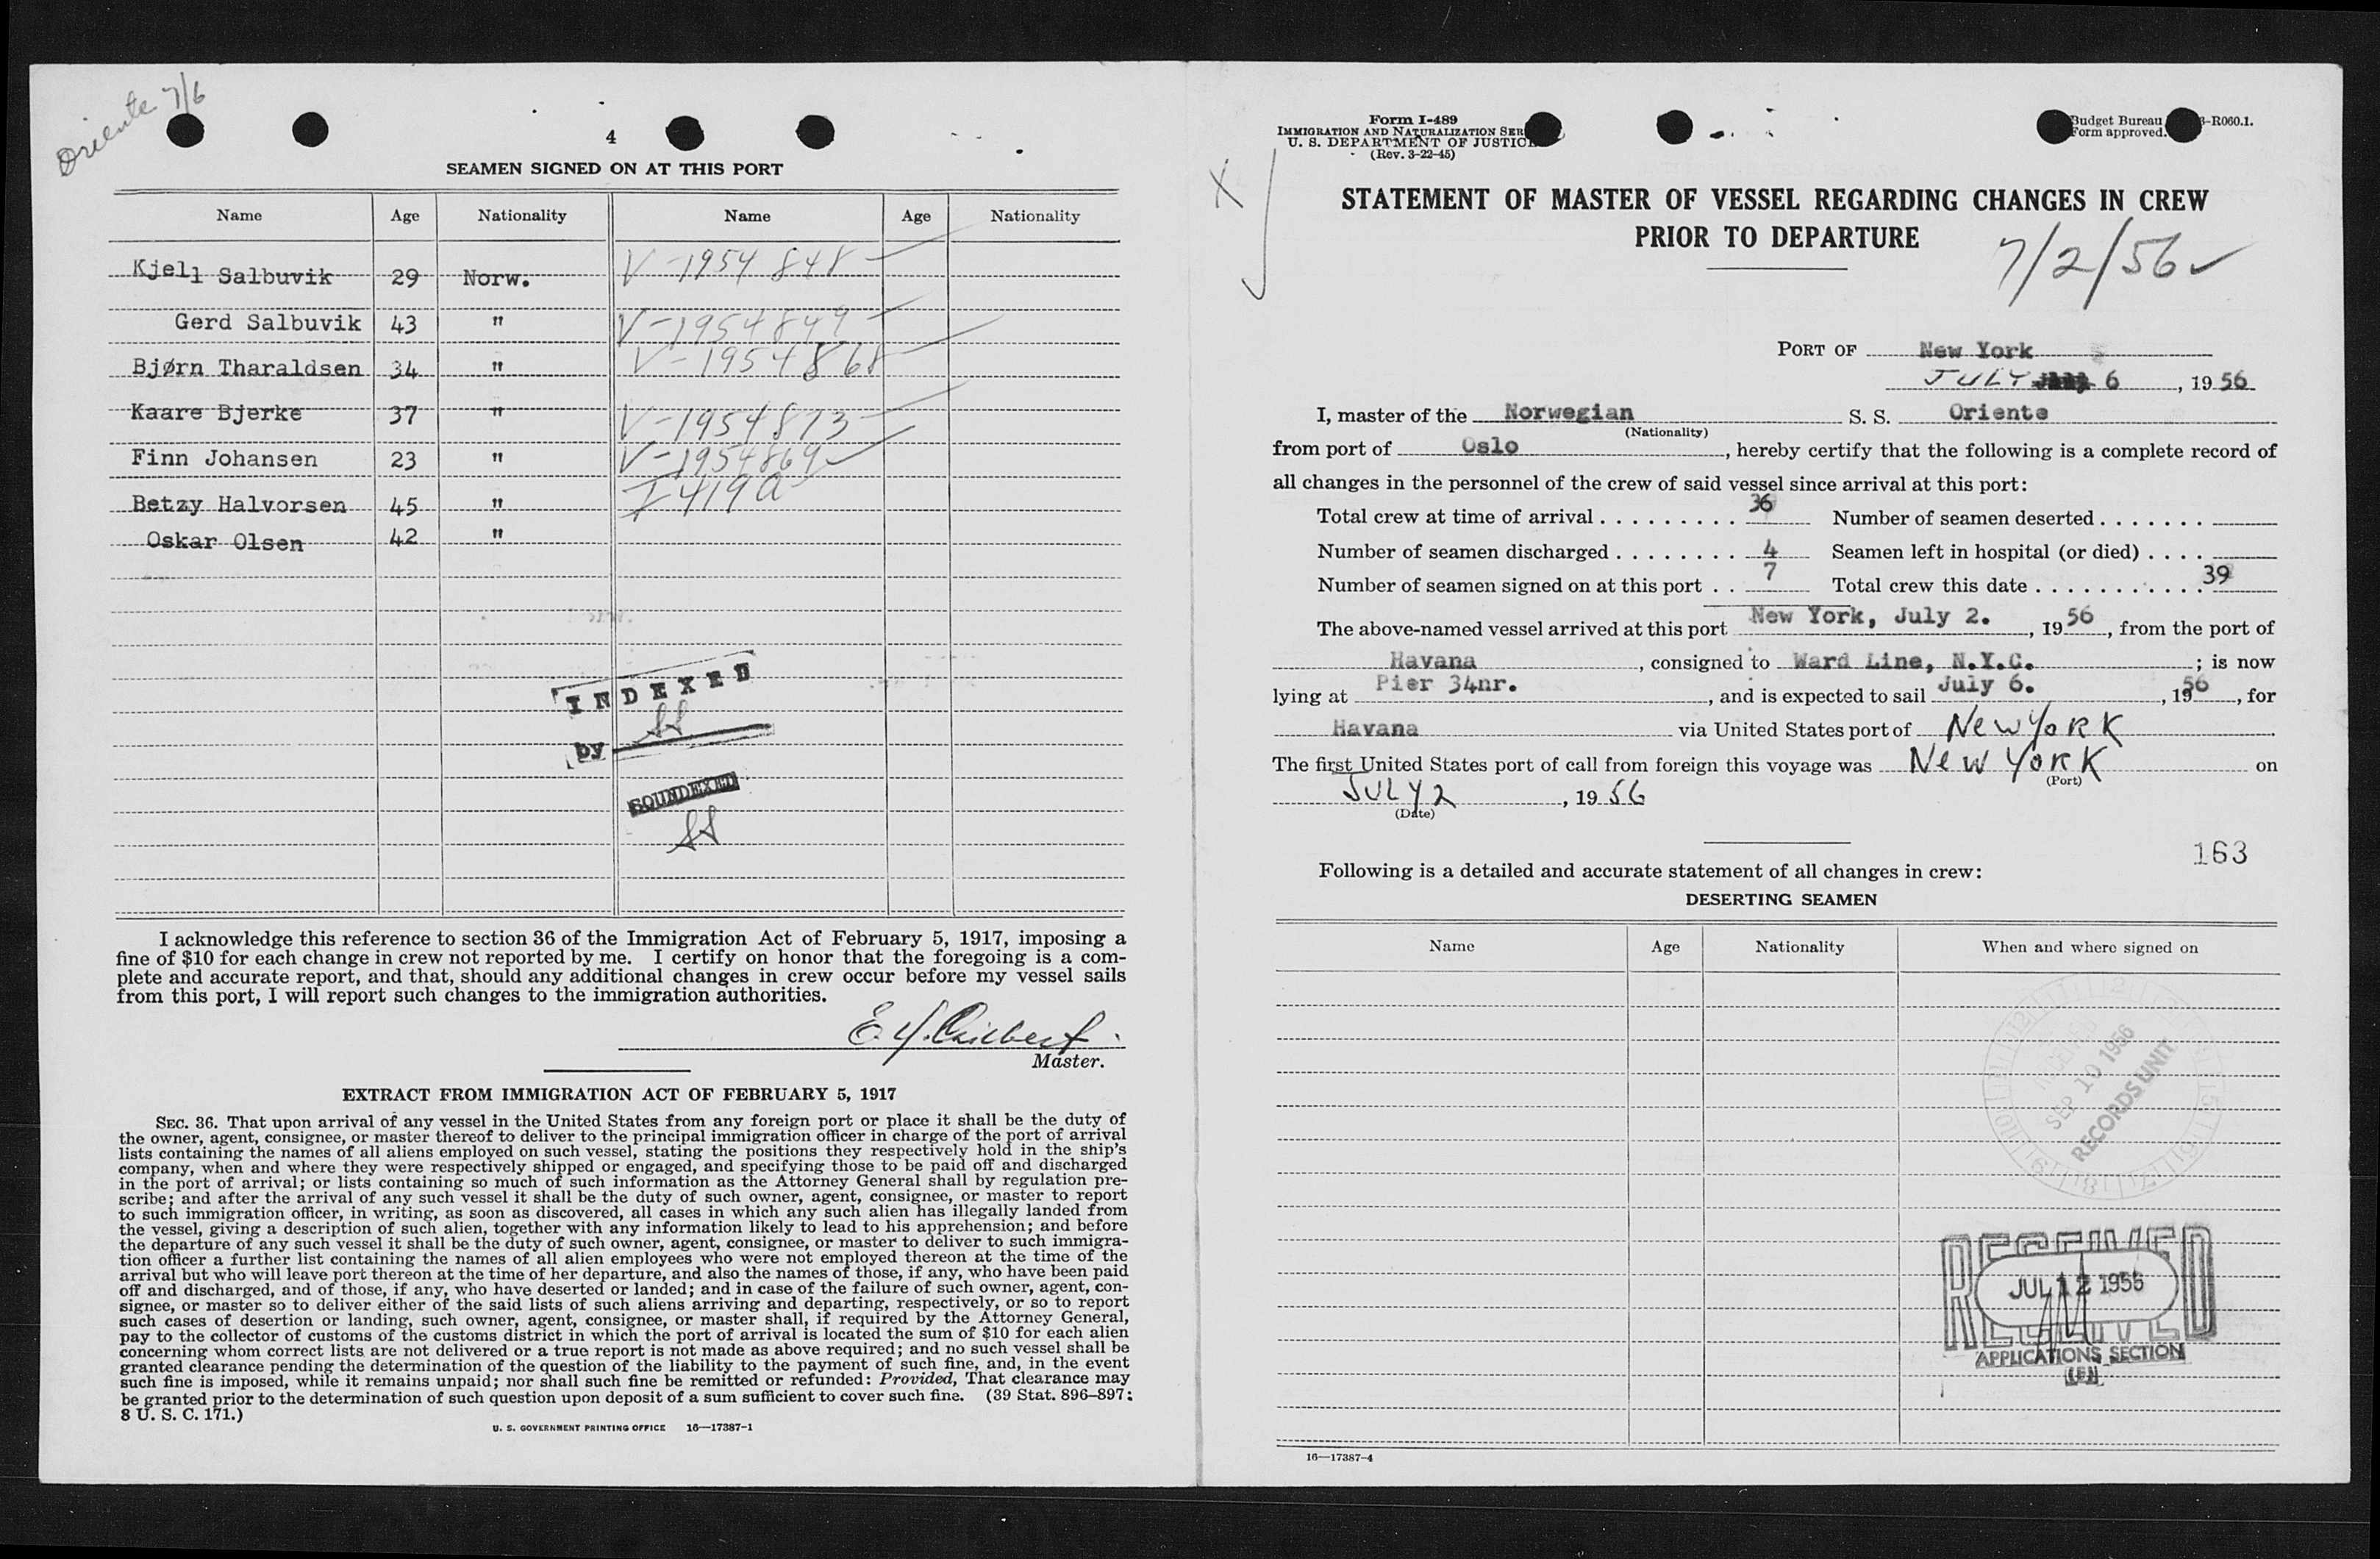 Oriente 7/6
4
SEAMEN SIGNED ON AT THIS PORT
Name Age Nationality Name Age Nationality
Kjell Salbuvik 29 Norw. V-1954 848
Gerd Salbuvik 43 " V-1954849
Bjørn Tharaldsen 34 " V-1954868
Kaare Bjerke 37 " V-1954873
Finn Johansen 23 " V-1954869
Betzy Halvorsen 45 " I 419 a
Oskar Olsen 42 "
INDEXED
by
SOUNDEXED
I acknowledge this reference to section 36 of the Immigration Act of February 5, 1917, imposing a
fine of $10 for each change in crew not reported by me. I certify on honor that the foregoing is a com-
plete and accurate report, and that, should any additional changes in crew occur before my vessel sails
from this port, I will report such changes to the immigration authorities.
Master.
EXTRACT FROM IMMIGRATION ACT OF FEBRUARY 5, 1917
SEC. 36. That upon arrival of any vessel in the United States from any foreign port or place it shall be the duty of
the owner, agent, consignee, or master thereof to deliver to the principal immigration officer in charge of the port of arrival
lists containing the names of all aliens employed on such vessel, stating the positions they respectively hold in the ship's
company, when and where they were respectively shipped or engaged, and specifying those to be paid off and discharged
in the port of arrival; or lists containing so much of such information as the Attorney General shall by regulation pre-
scribe; and after the arrival of any such vessel it shall be the duty of such owner, agent, consignee, or master to report
to such immigration officer, in writing, as soon as discovered, all cases in which any such alien has illegally landed from
the vessel, giving a description of such alien, together with any information likely to lead to his apprehension; and before
the departure of any such vessel it shall be the duty of such owner, agent, consignee, or master to deliver to such immigra-
tion officer a further list containing the names of all alien employees who were not employed thereon at the time of the
arrival but who will leave port thereon at the time of her departure, and also the names of those, if any, who have been paid
off and discharged, and of those, if any, who have deserted or landed; and in case of the failure of such owner, agent, con-
signee, or master so to deliver either of the said lists of such aliens arriving and departing, respectively, or so to report
such cases of desertion or landing, such owner, agent, consignee, or master shall, if required by the Attorney General,
pay to the collector of customs of the customs district in which the port of arrival is located the sum of $10 for each alien
concerning whom correct lists are not delivered or a true report is not made as above required; and no such vessel shall be
granted clearance pending the determination of the question of the liability to the payment of such fine, and, in the event
such fine is imposed, while it remains unpaid; nor shall such fine be remitted or refunded: Provided, That clearance may
be granted prior to the determination of such question upon deposit of a sum sufficient to cover such fine. (39 Stat. 896–897;
8 U. S. C. 171.)
U. S. GOVERNMENT PRINTING OFFICE 16—17387-1
Form I-489
IMMIGRATION AND NATURALIZATION SER
U. S. DEPARTMENT OF JUSTICE
(Rev. 3-22-45)
Budget Bureau -R060.1.
Form approved.
X
STATEMENT OF MASTER OF VESSEL REGARDING CHANGES IN CREW
PRIOR TO DEPARTURE
7/2/56
PORT OF New York
JULY 6, 1956
I, master of the Norwegian S. S. Oriente
(Nationality)
from port of Oslo, hereby certify that the following is a complete record of
all changes in the personnel of the crew of said vessel since arrival at this port:
Total crew at time of arrival . . . . . . . . . 36 Number of seamen deserted . . . . . . .
Number of seamen discharged . . . . . . . . 4 Seamen left in hospital (or died) . . . .
Number of seamen signed on at this port . . 7 Total crew this date . . . . . . . . . . . 39
The above-named vessel arrived at this port New York, July 2., 1956, from the port of
Havana, consigned to Ward Line, N.Y.C.; is now
lying at Pier 34nr., and is expected to sail July 6., 1956, for
Havana via United States port of New York
The first United States port of call from foreign this voyage was New York on
(Port)
JULY 2, 1956
(Date)
163
Following is a detailed and accurate statement of all changes in crew:
DESERTING SEAMEN
Name Age Nationality When and where signed on
RECEIVED
SEP 10 1956
RECORDS UNIT
RECEIVED
JUL 12 1956
APPLICATIONS SECTION
16—17387-4